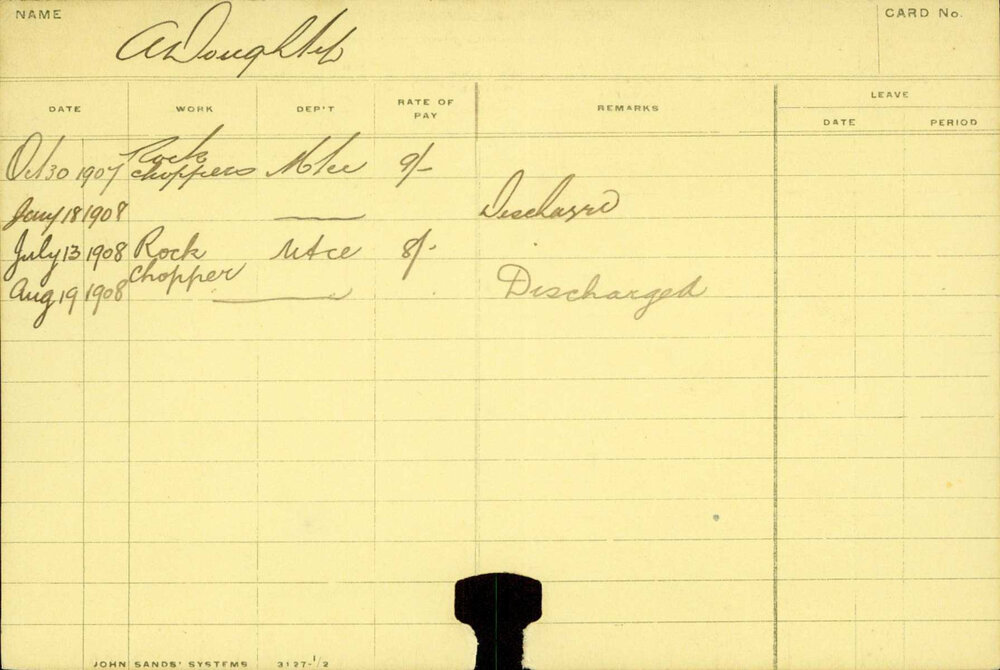 NAME
A Doughty
CARD No.
DATE WORK DEP'T RATE OF PAY REMARKS LEAVE
DATE PERIOD
Oct 30 1907 Rock choppers Mtce 9/-
Jany 18 1908 Discharg'd
July 13 1908 Rock chopper Mtce 8/-
Aug 19 1908 Discharged
JOHN SANDS' SYSTEMS 3127-1/2